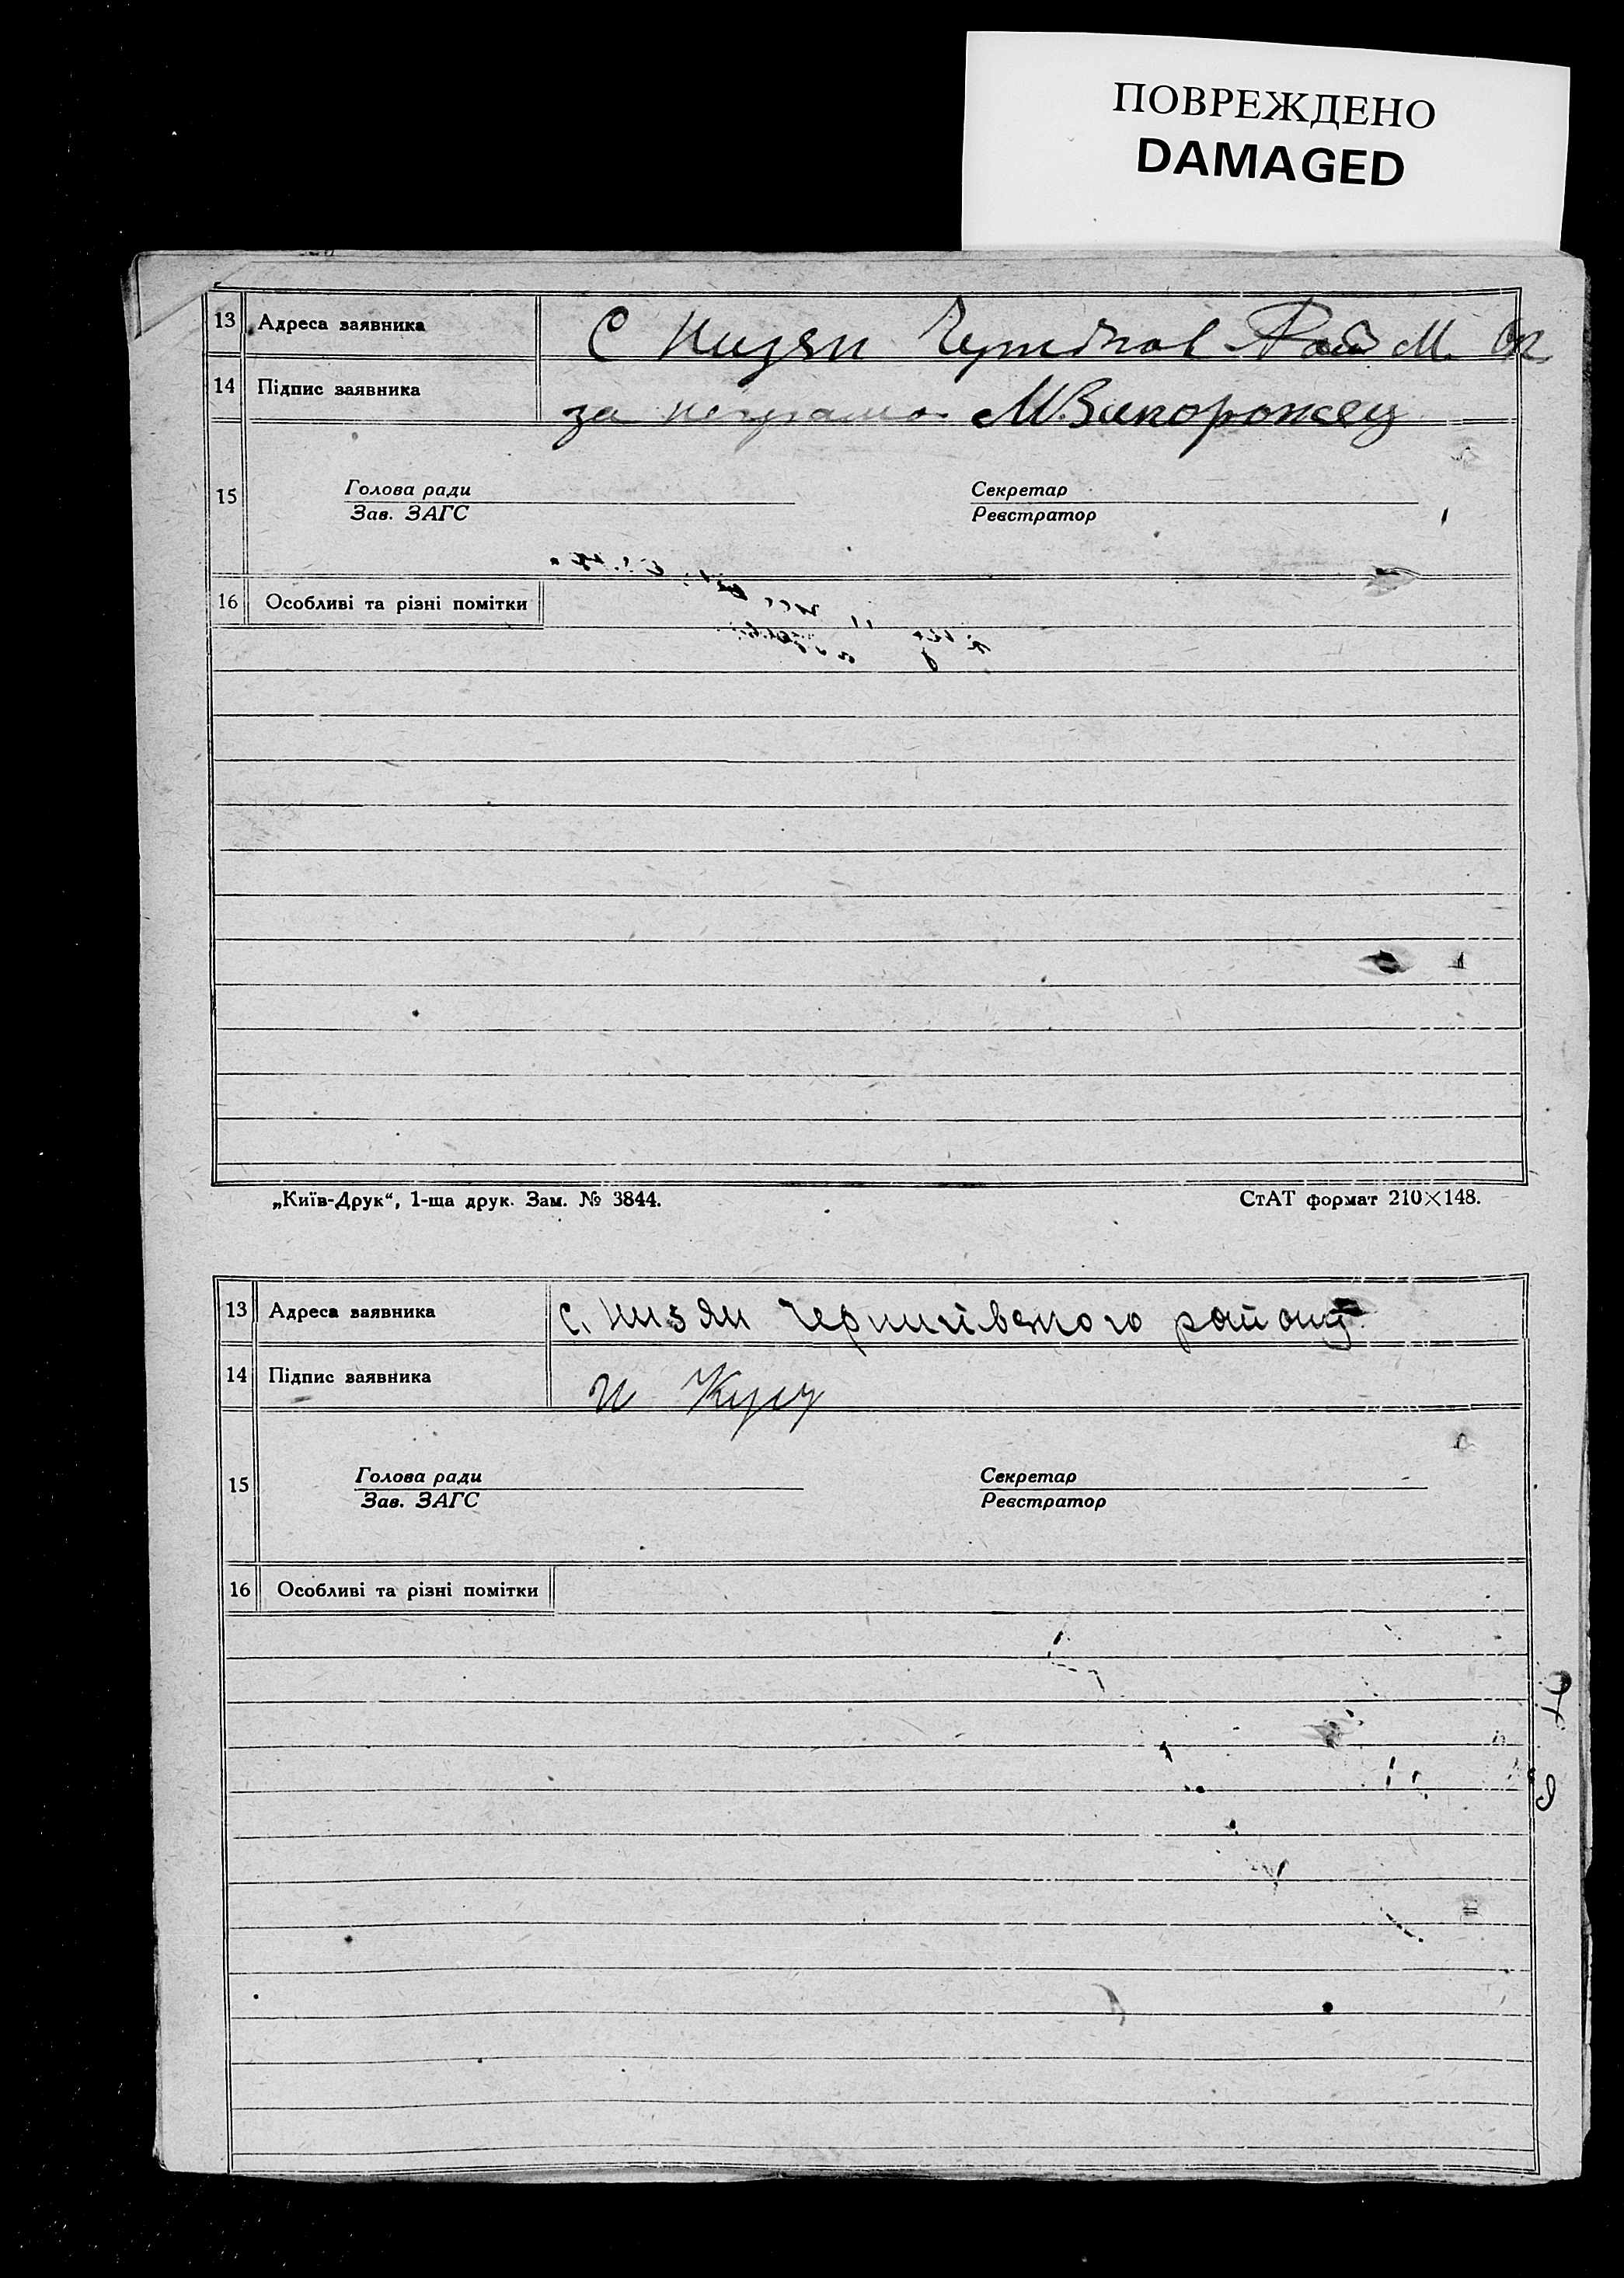 ПОВРЕЖДЕНО
DAMAGED
13 Адреса заявника С Низян Рай М. Ок
14 Підпис заявника за неграмо М.Запорожец
15 Голова ради Секретар
Зав. ЗАГС Реєстратор
16 Особливі та різні помітки
„Київ-Друк“, 1-ша друк. Зам. № 3844. СтАТ формат 210×148.
13 Адреса заявника с. Низян Чернигівського району
14 Підпис заявника И
15 Голова ради Секретар
Зав. ЗАГС Реєстратор
16 Особливі та різні помітки